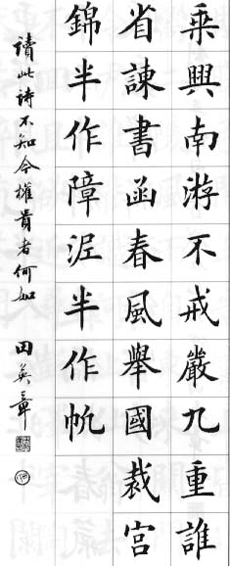 乗興南游不戒嚴九重誰
省諫書函春風舉國裁宮
錦半作障泥半作帆
讀此詩不知今權貴者何如 田英章